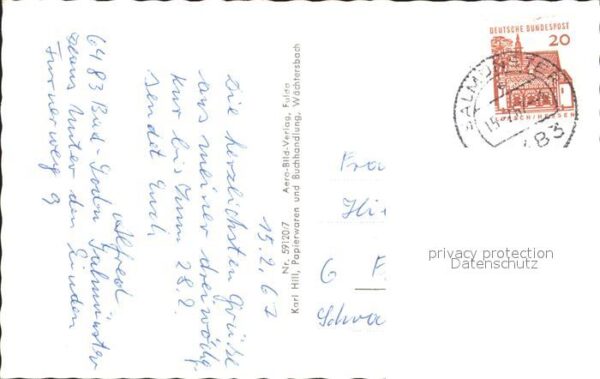 15.2.67
Die herzlichsten Grüße
aus meiner dreiwöchg.
Kur bis zum 28.2.
sendet Euch
Alfred
6483 Bad-Soden Salmünster
Haus Unter den Linden
9
Nr. 59120/7 Aero-Bild-Verlag, Fulda
Karl Hill, Papierwaren und Buchhandlung, Wächtersbach
DEUTSCHE BUNDESPOST
20
LORSCH/HESSEN
SALMÜNSTER
Fra
6 F
privacy protection
Datenschutz